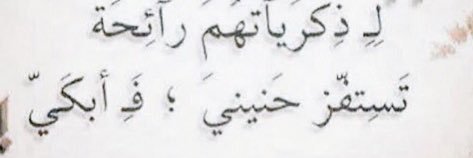 لِـِ ذِكرَيَآتهُمَ رآئِحَة
تَستِفّز حَنينيَ ؛ فَـِ أبكَيّ